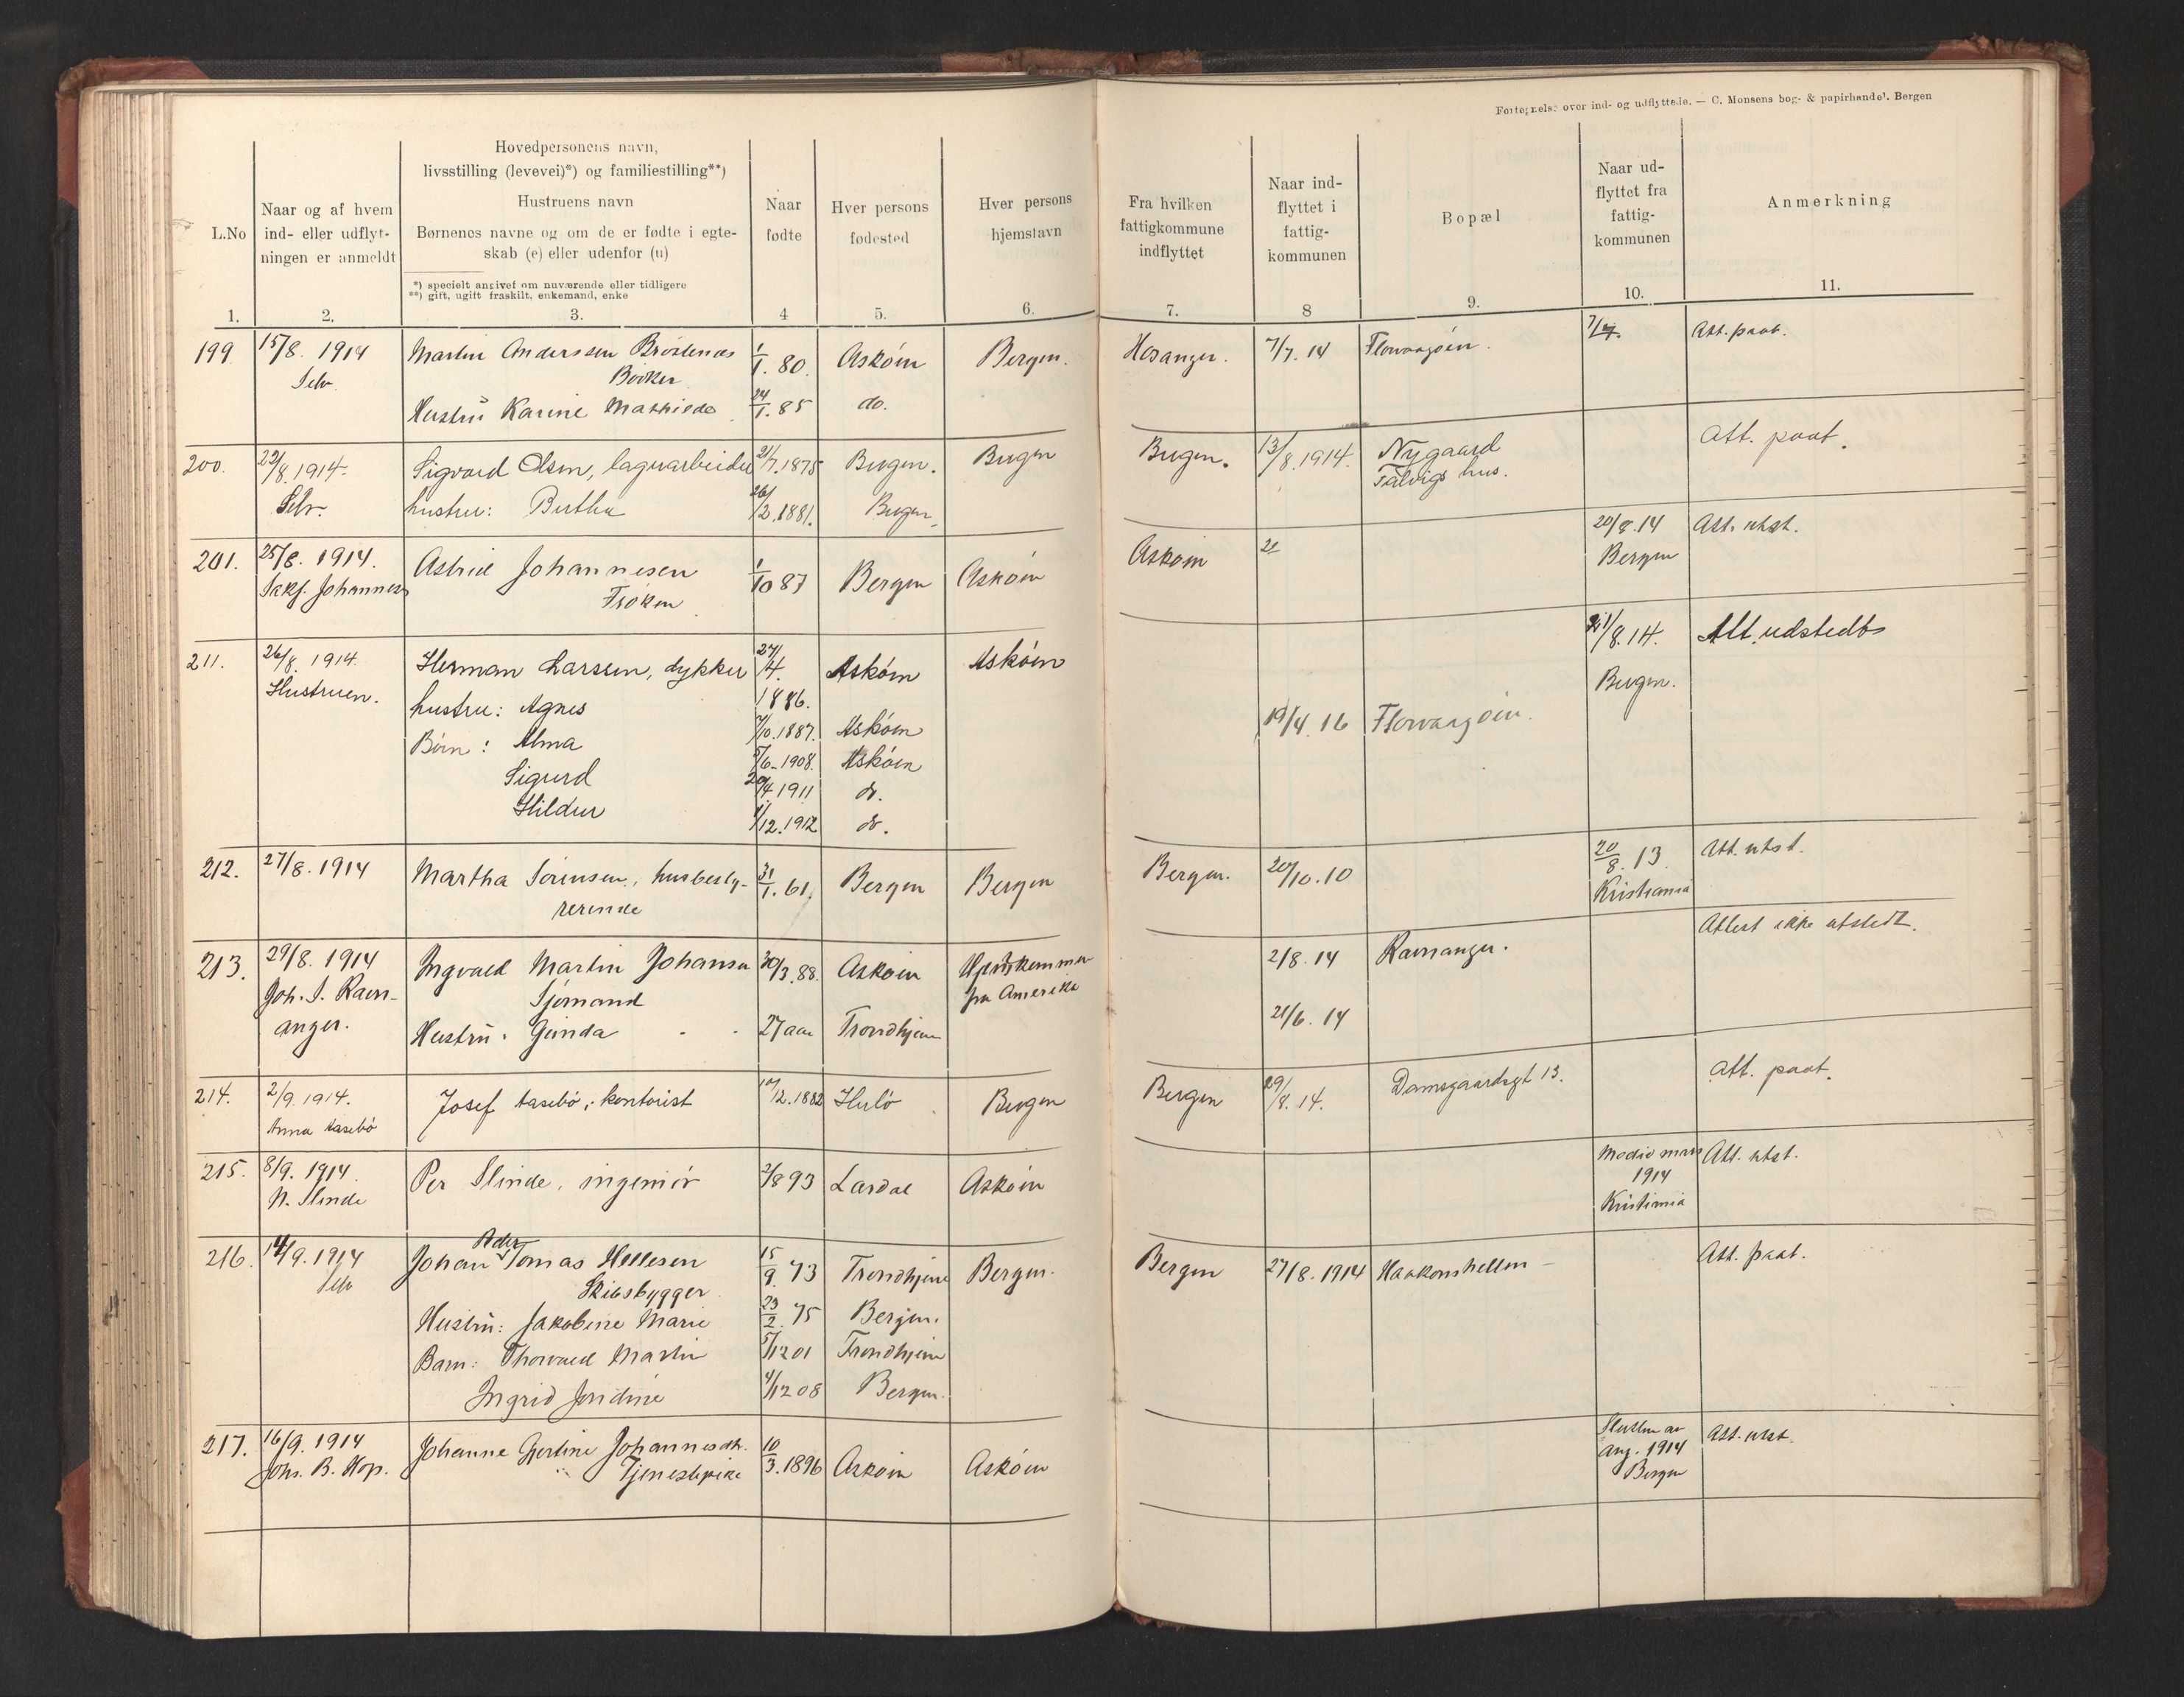 Fortegnelse over ind- og udflyttede. — C. Monsens bog- & papirhandel, Bergen
L.No
1.
Naar og af hvem
ind- eller udflyt-
ningen er anmeldt
2.
Hovedpersonens navn,
livsstilling (levevei)*) og familiestilling**)
Hustruens navn
Børnenes navne og om de er fødte i egte-
skab (e) eller udenfor (u)
*) specielt angivet om nuværende eller tidligere
**) gift, ugift fraskilt, enkemand, enke
3.
Naar
fødte
4
Hver persons
fødested
5.
Hver persons
hjemstavn
6.
Fra hvilken
fattigkommune
indflyttet
7.
Naar ind-
flyttet i
fattig-
kommunen
8
Bopæl
9.
Naar ud-
flyttet fra
fattig-
kommunen
10.
Anmerkning
11.
199 15/8. 1914 Martin Anderssen 1/1. 80 Askøen Bergen. Hosanger. 7/7. 14 Florvaagøen. Att. paat.
Selv
Hustru Karine Mathilde 24/1. 85 do.
200. 22/8. 1914. Sigvard Olsen, lagerarbeider 21/7. 1875 Bergen. Bergen Bergen. 13/8. 1914. Nygaard Att. paat.
Selv. hustru: Bertha 26/2. 1881. Bergen. hus.
201. 25/8. 1914. Astrid Johannesen 1/10 87 Bergen Askøen Askøen 20/8. 14 Att. utst.
Sakf. Johannes Frøken Bergen
211. 26/8. 1914. Herman Larssen, dykker 27/4. Askøen Askøen 21/8. 14. Att. udstedt
Hustruen. 1886. Bergen.
hustru: Agnes 7/10. 1887. Askøen 19/4. 16 Florvaagøen.
Børn: Alma 5/6. 1908. Askøen
Sigurd 20/4 1911 do.
Hildur 1/12. 1912 do.
212. 27/8. 1914 Martha Sørensen, husbesty- 31/1. 61. Bergen Bergen Bergen. 20/10. 10 20/8. 13. Att. utst.
rerende Kristiania
213. 29/8. 1914 Ingvald Martin Johansen 30/3. 88. Askøen Hjemkommen 2/8. 14 Ramsanger. Attest ikke utstedt.
Joh. J. Ram- Sjømand fra Amerika
anger. Hustru: Gunda 27 aar Trondhjem 21/6. 14
214. 2/9. 1914. Josef Aasebø, kontorist 10/2. 1882 Herlø Bergen Bergen 29/8. 14. Damsgaardsgt 13. Att. paat.
Anna Aasebø
215. 8/9. 1914 Per Slinde, ingeniør 2/8 93 Lardal Askøen Medio mars Att. utst.
N. Slinde 1914
Kristiania
216. 14/9. 1914 Johan Peder Tomas Hellesen 15/9. 73 Trondhjem Bergen. Bergen 27/8. 1914 Haakonshellen Att. paat.
Selv Skibsbygger
Hustru: Jakobine Marie 23/2. 75 Bergen.
Barn: Thorvald Martin 5/12 01 Trondhjem
Ingrid 4/12 08 Bergen.
217. 16/9. 1914 Johanne Gjertine Johannesdtr. 10/3. 1896 Askøen Askøen Slutten av Att. utst.
Johs. B. Hop. Tjenestepike aug. 1914
Bergen